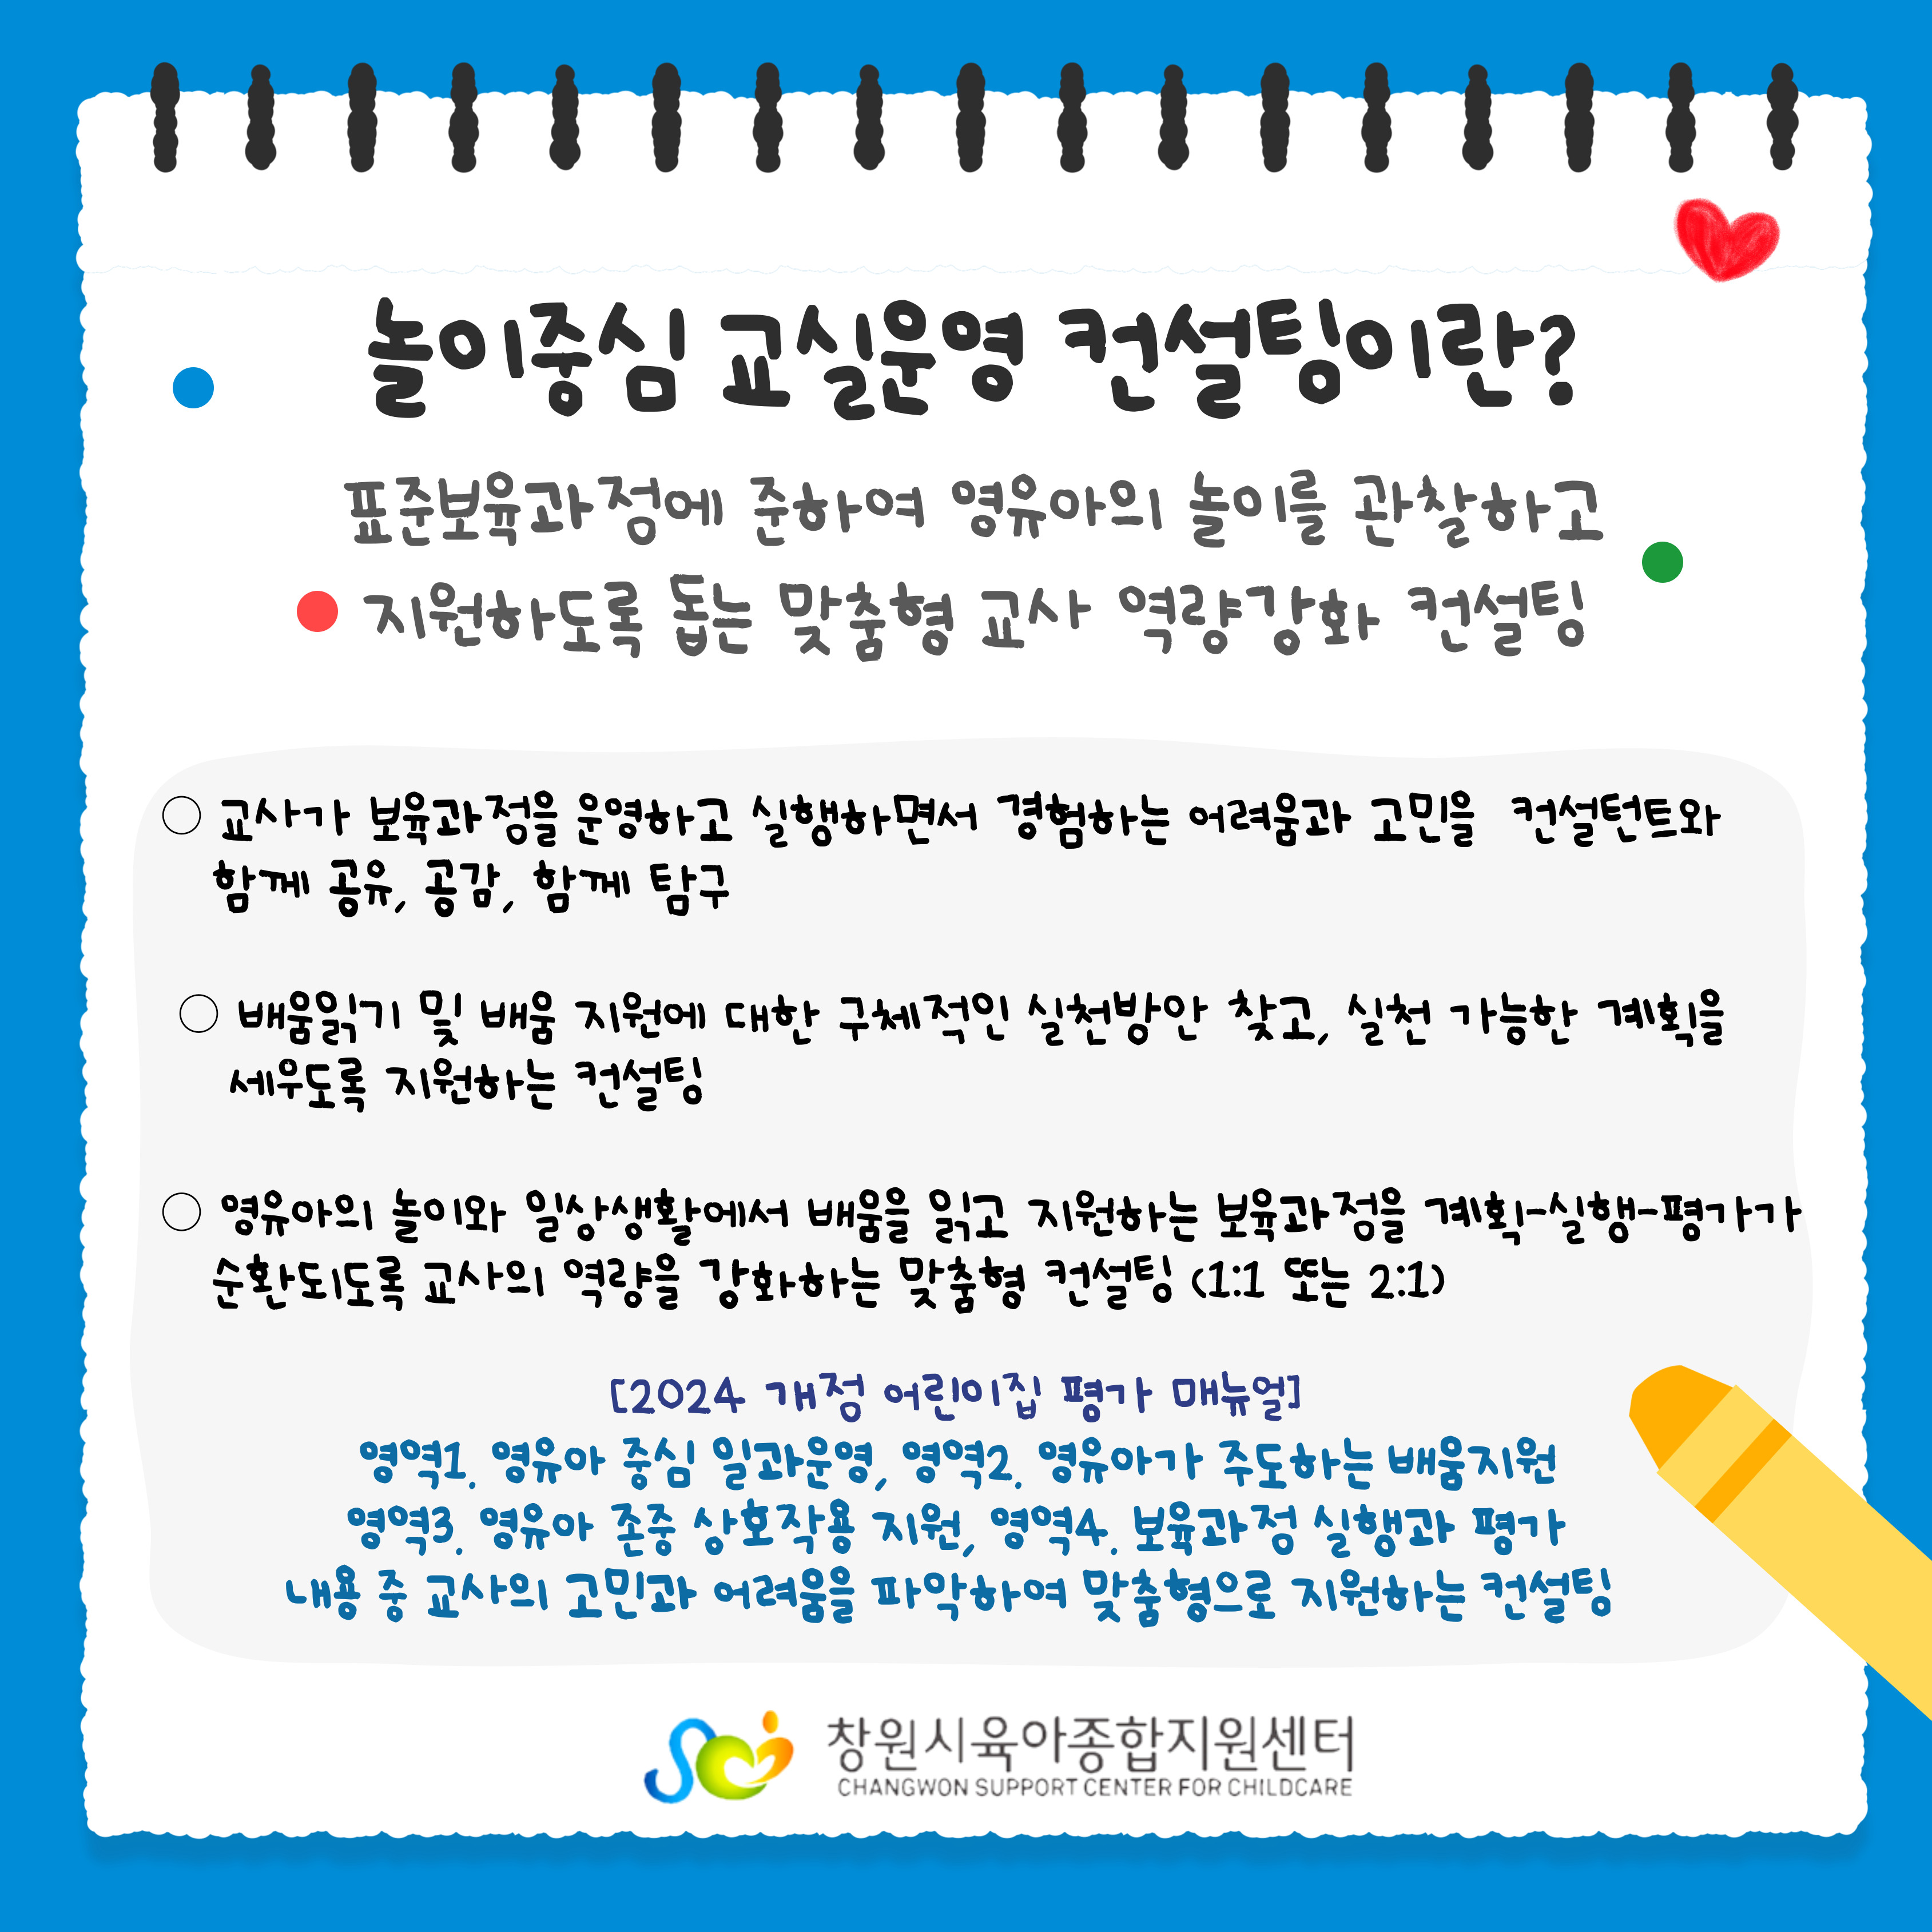 놀이중심 교실운영 컨설팅이란?
표준보육과정에 준하여 영유아의 놀이를 관찰하고
지원하도록 돕는 맞춤형 교사 역량강화 컨설팅
○ 교사가 보육과정을 운영하고 실행하면서 경험하는 어려움과 고민을 컨설턴트와
함께 공유, 공감, 함께 탐구
○ 배움읽기 및 배움 지원에 대한 구체적인 실천방안 찾고, 실천 가능한 계획을
세우도록 지원하는 컨설팅
○ 영유아의 놀이와 일상생활에서 배움을 읽고 지원하는 보육과정을 계획-실행-평가가
순환되도록 교사의 역량을 강화하는 맞춤형 컨설팅 (1:1 또는 2:1)
[2024 개정 어린이집 평가 매뉴얼]
영역1. 영유아 중심 일과운영, 영역2. 영유아가 주도하는 배움지원
영역3. 영유아 존중 상호작용 지원, 영역4. 보육과정 실행과 평가
내용 중 교사의 고민과 어려움을 파악하여 맞춤형으로 지원하는 컨설팅
창원시육아종합지원센터
CHANGWON SUPPORT CENTER FOR CHILDCARE